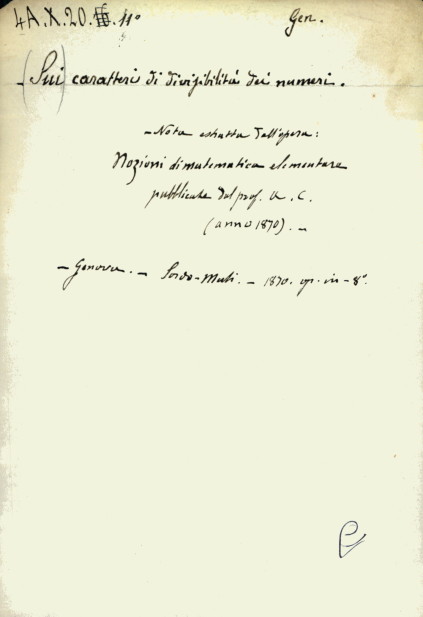 4A.X.20. 11º
Gen.
(Sui) caratteri di divisibilità dei numeri.
- Nota estratta dall'opera:
Nozioni di matematica elementare
pubblicate dal prof. A. C.
(anno 1870). -
- Genova. - Sordo-Muti. - 1870. op. in - 8º.